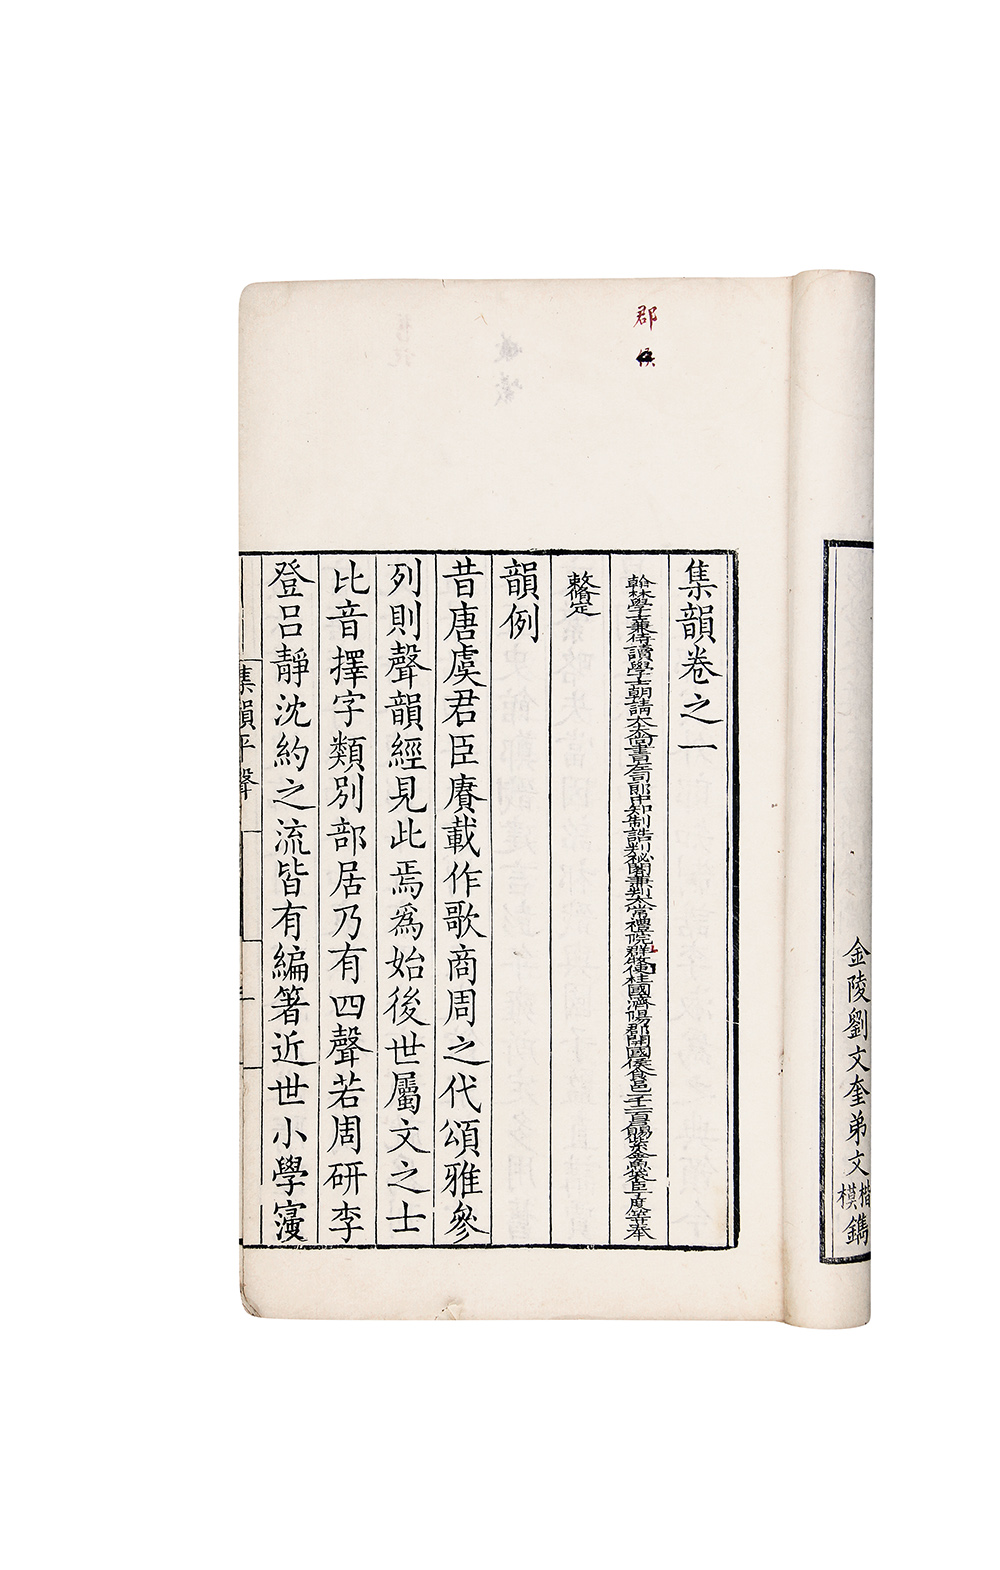 金陵劉文奎弟文楷模鐫
郡
侯
集韻卷之一
翰林學士兼侍讀學士朝請大夫尚書左司郎中知制誥判祕閣兼判太常禮院群牧使柱國濟陽郡開國侯食邑一千三百戶賜紫金魚袋臣丁度等奉
敕脩定
韻例
昔唐虞君臣賡載作歌商周之代頌雅參
列則聲韻經見此焉爲始後世屬文之士
比音擇字類別部居乃有四聲若周研李
登呂靜沈約之流皆有編箸近世小學寖
集韻平聲一